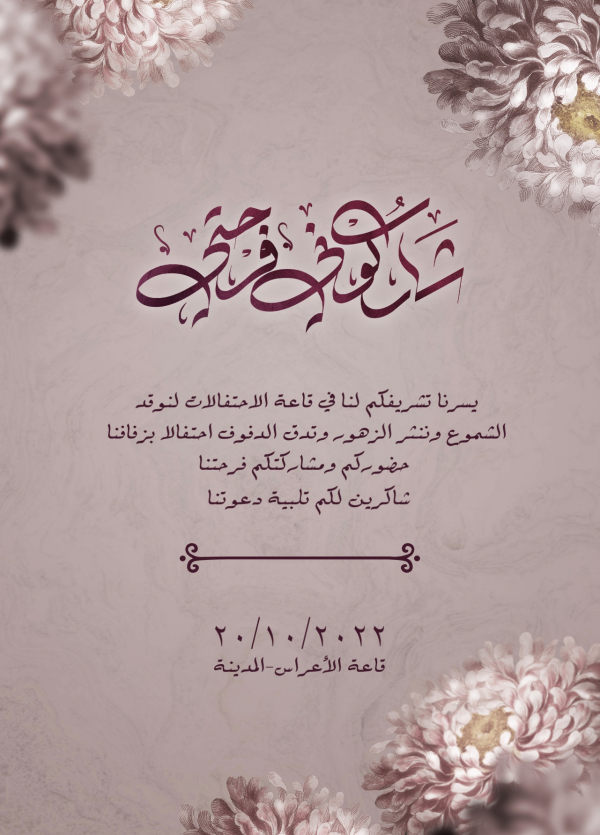 شاركوني فرحتي
يسرنا تشريفكم لنا في قاعة الاحتفالات لنوقد
الشموع وننثر الزهور وتدق الدفوف احتفالا بزفافنا
حضوركم ومشاركتكم فرحتنا
شاكرين لكم تلبية دعوتنا
٢٠/١٠/٢٠٢٢
قاعة الأعراس-المدينة